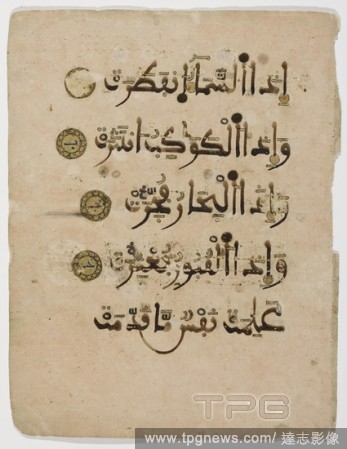 إِذَا ٱلسَّمَآءُ ٱنفَطَرَتْ
وَإِذَا ٱلْكَوَاكِبُ ٱنتَثَرَتْ
وَإِذَا ٱلْبِحَارُ فُجِّرَتْ
وَإِذَا ٱلْقُبُورُ بُعْثِرَتْ
عَلِمَتْ نَفْسٌ مَّا قَدَّمَتْ
TPG
www.tpgnews.com/ 達志影像